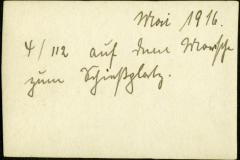 Mai 1916.
4/112 auf dem Marsche
zum Schießplatz.